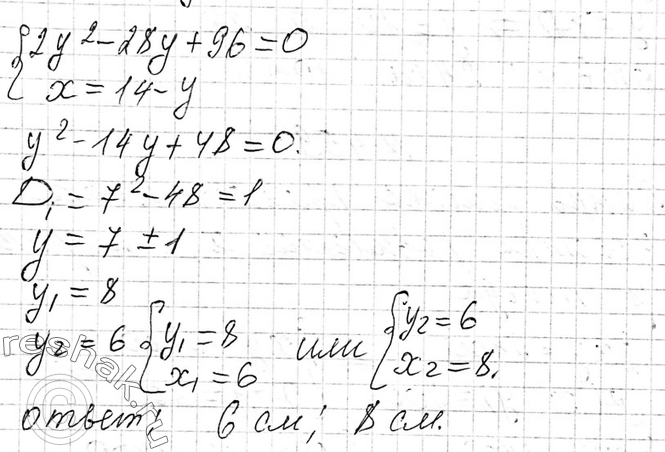 {2y² - 28y + 96 = 0
x = 14 - y
y² - 14y + 48 = 0.
D₁ = 7² - 48 = 1
y = 7 ± 1
y₁ = 8
y₂ = 6 {y₁ = 8 x₁ = 6 или {y₂ = 6 x₂ = 8.
ответ: 6 см; 8 см.
reshak.ru